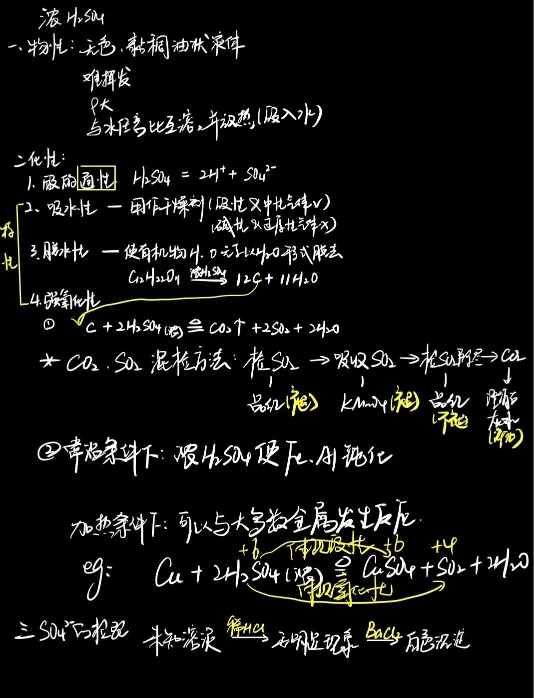 浓H₂SO₄
一、物性：无色、黏稠油状液体
难挥发
ρ大
与水任意比互溶，并放热（酸入水）
二化性：
1. 酸的通性 H₂SO₄ = 2H⁺ + SO₄²⁻
特性
2、吸水性 — 用作干燥剂（酸性及中性气体√）
（碱性及还原性气体×）
3.脱水性 — 使有机物H、O元素以H₂O形式脱去
C₁₂H₂₂O₁₁ 浓H₂SO₄→ 12C + 11H₂O
4.强氧化性
① C + 2H₂SO₄(浓) ≜ CO₂↑ + 2SO₂ + 2H₂O
* CO₂、SO₂ 混检方法：检SO₂ → 吸收SO₂ → 检SO₂ → CO₂
品红（褪） KMnO₄（褪） 品红（不褪） 澄清石灰水
②常温条件下：浓H₂SO₄使Fe、Al钝化
加热条件下：可以与大多数金属发生反应.
+6 体现酸性 +6 +4
eg： Cu + 2H₂SO₄(浓) ≜ CuSO₄ + SO₂ + 2H₂O
体现氧化性
三 SO₄²⁻的检验 未知溶液 稀HCl→ 无明显现象 BaCl₂→ 白色沉淀